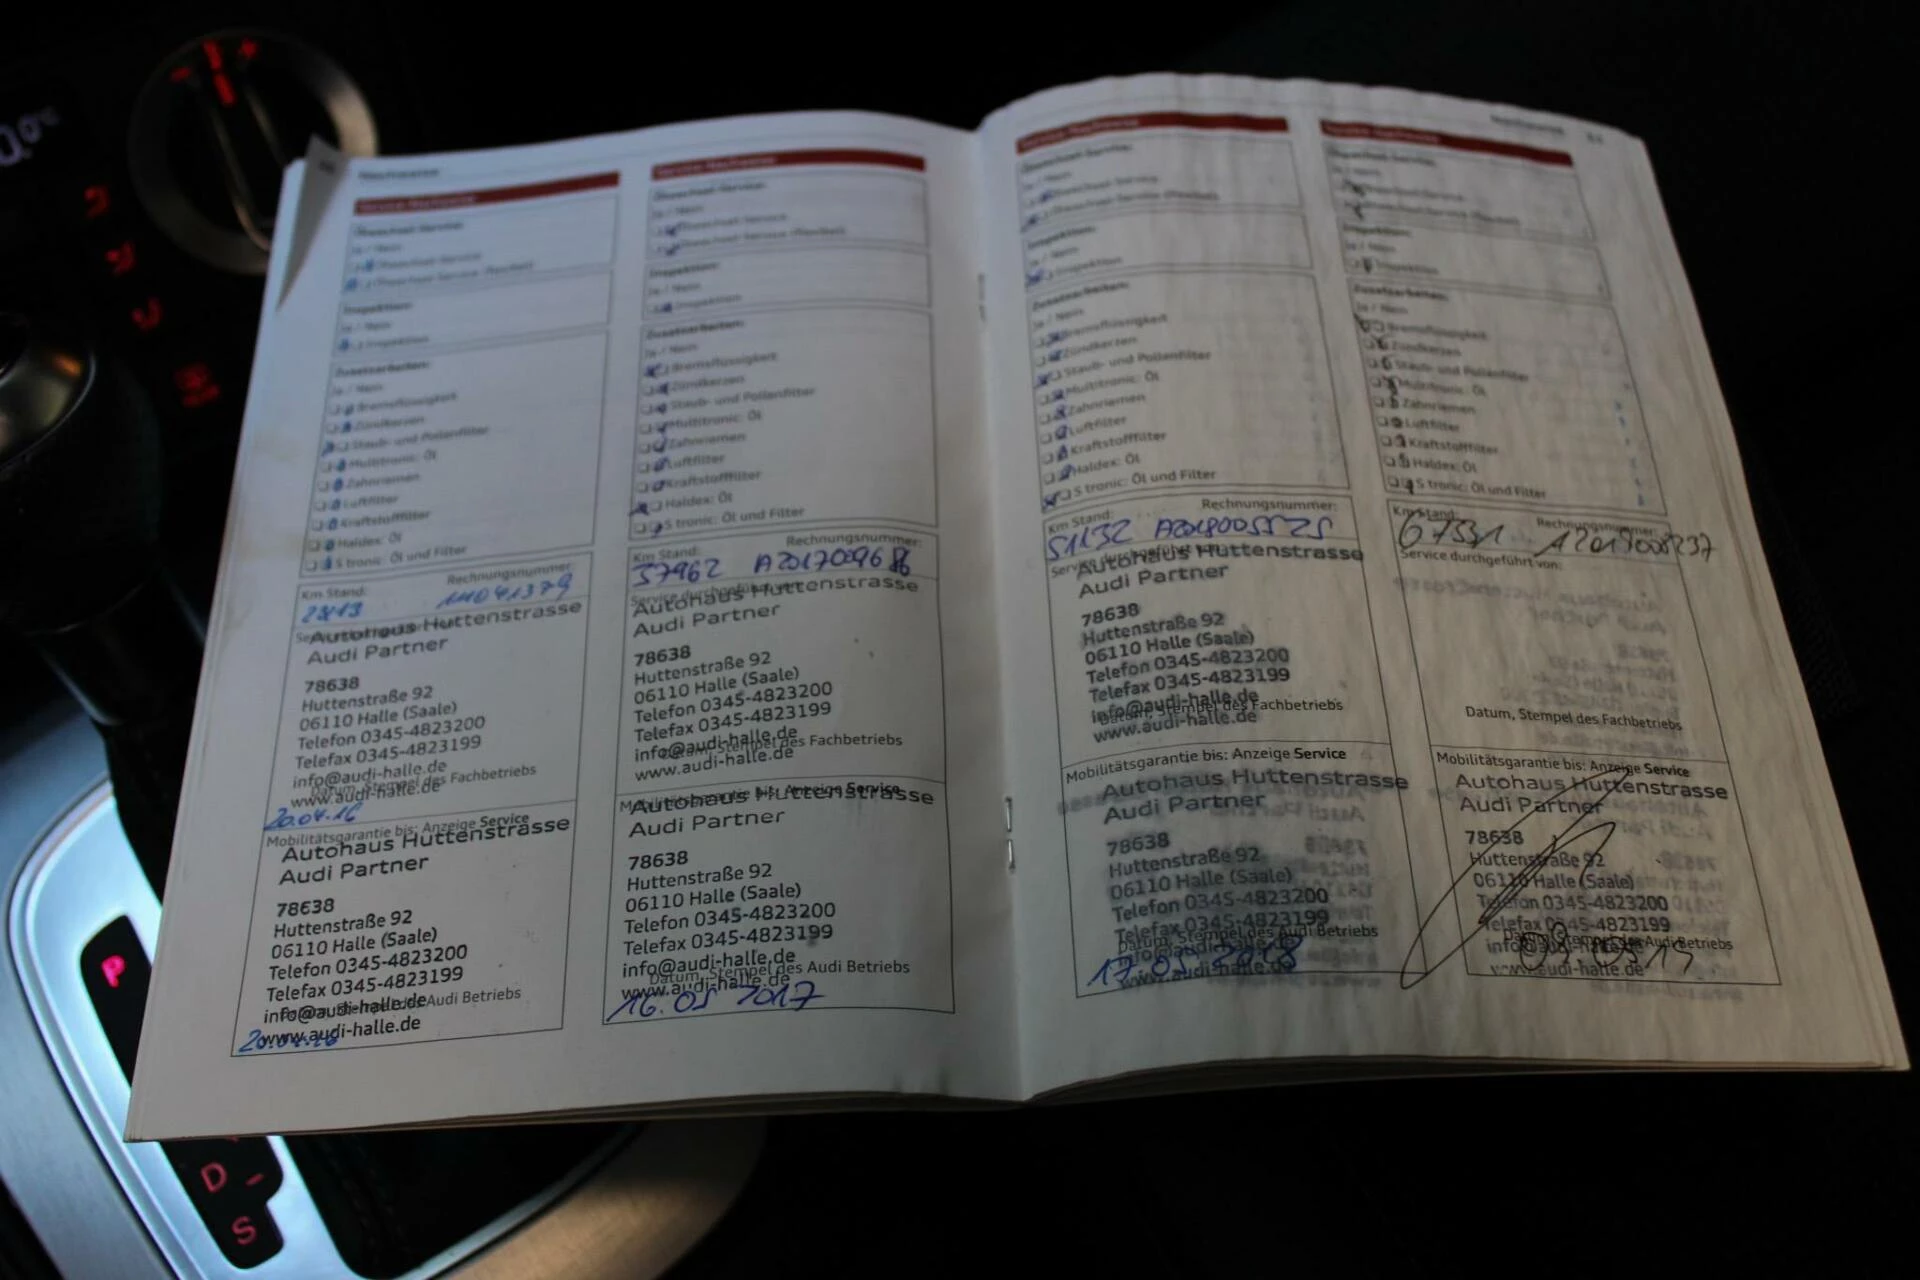 Nachweise
Service-Nachweise
Ölwechsel-Service:
Ja / Nein
Ölwechsel-Service
Ölwechsel-Service (flexibel)
Inspektion:
Ja / Nein
Inspektion
Zusatzarbeiten:
Ja / Nein
Bremsflüssigkeit
Zündkerzen
Staub- und Pollenfilter
Multitronic: Öl
Zahnriemen
Luftfilter
Kraftstofffilter
Haldex: Öl
S tronic: Öl und Filter
Km Stand: Rechnungsnummer:
11041379
Autohaus Huttenstrasse
Audi Partner
78638
Huttenstraße 92
06110 Halle (Saale)
Telefon 0345-4823200
Telefax 0345-4823199
info@audi-halle.de
Datum, Stempel des Fachbetriebs
www.audi-halle.de
20.04.16
Mobilitätsgarantie bis: Anzeige Service
Autohaus Huttenstrasse
Audi Partner
78638
Huttenstraße 92
06110 Halle (Saale)
Telefon 0345-4823200
Telefax 0345-4823199
info@audi-halle.de
Datum, Stempel des Audi Betriebs
www.audi-halle.de
20.04.16
Service-Nachweise
Ölwechsel-Service:
Ja / Nein
Ölwechsel-Service
Ölwechsel-Service (flexibel)
Inspektion:
Ja / Nein
Inspektion
Zusatzarbeiten:
Ja / Nein
Bremsflüssigkeit
Zündkerzen
Staub- und Pollenfilter
Multitronic: Öl
Zahnriemen
Luftfilter
Kraftstofffilter
Haldex: Öl
S tronic: Öl und Filter
Km Stand: Rechnungsnummer:
37962 A201700968
Service durchgeführt von:
Autohaus Huttenstrasse
Audi Partner
78638
Huttenstraße 92
06110 Halle (Saale)
Telefon 0345-4823200
Telefax 0345-4823199
info@audi-halle.de
Datum, Stempel des Fachbetriebs
www.audi-halle.de
Mobilitätsgarantie bis: Anzeige Service
Autohaus Huttenstrasse
Audi Partner
78638
Huttenstraße 92
06110 Halle (Saale)
Telefon 0345-4823200
Telefax 0345-4823199
info@audi-halle.de
Datum, Stempel des Audi Betriebs
www.audi-halle.de
16.05 2017
Service-Nachweise
Ölwechsel-Service:
Ja / Nein
Ölwechsel-Service
Ölwechsel-Service (flexibel)
Inspektion:
Ja / Nein
Inspektion
Zusatzarbeiten:
Ja / Nein
Bremsflüssigkeit
Zündkerzen
Staub- und Pollenfilter
Multitronic: Öl
Zahnriemen
Luftfilter
Kraftstofffilter
Haldex: Öl
S tronic: Öl und Filter
Km Stand: Rechnungsnummer:
51132 A2018005525
Service durchgeführt von:
Autohaus Huttenstrasse
Audi Partner
78638
Huttenstraße 92
06110 Halle (Saale)
Telefon 0345-4823200
Telefax 0345-4823199
info@audi-halle.de
Datum, Stempel des Fachbetriebs
www.audi-halle.de
Mobilitätsgarantie bis: Anzeige Service
Autohaus Huttenstrasse
Audi Partner
78638
Huttenstraße 92
06110 Halle (Saale)
Telefon 0345-4823200
Telefax 0345-4823199
Datum, Stempel des Audi Betriebs
info@audi-halle.de
www.audi-halle.de
Nachweise
Service-Nachweise
Ölwechsel-Service:
Ja / Nein
Ölwechsel-Service
Ölwechsel-Service (flexibel)
Inspektion:
Ja / Nein
Inspektion
Zusatzarbeiten:
Ja / Nein
Bremsflüssigkeit
Zündkerzen
Staub- und Pollenfilter
Multitronic: Öl
Zahnriemen
Luftfilter
Kraftstofffilter
Haldex: Öl
S tronic: Öl und Filter
Km Stand: Rechnungsnummer:
67331 A2019008237
Service durchgeführt von:
Datum, Stempel des Fachbetriebs
Mobilitätsgarantie bis: Anzeige Service
Autohaus Huttenstrasse
Audi Partner
78638
Huttenstraße 92
06110 Halle (Saale)
Telefon 0345-4823200
Telefax 0345-4823199
Datum, Stempel des Audi Betriebs
info@audi-halle.de
www.audi-halle.de
P
D
S